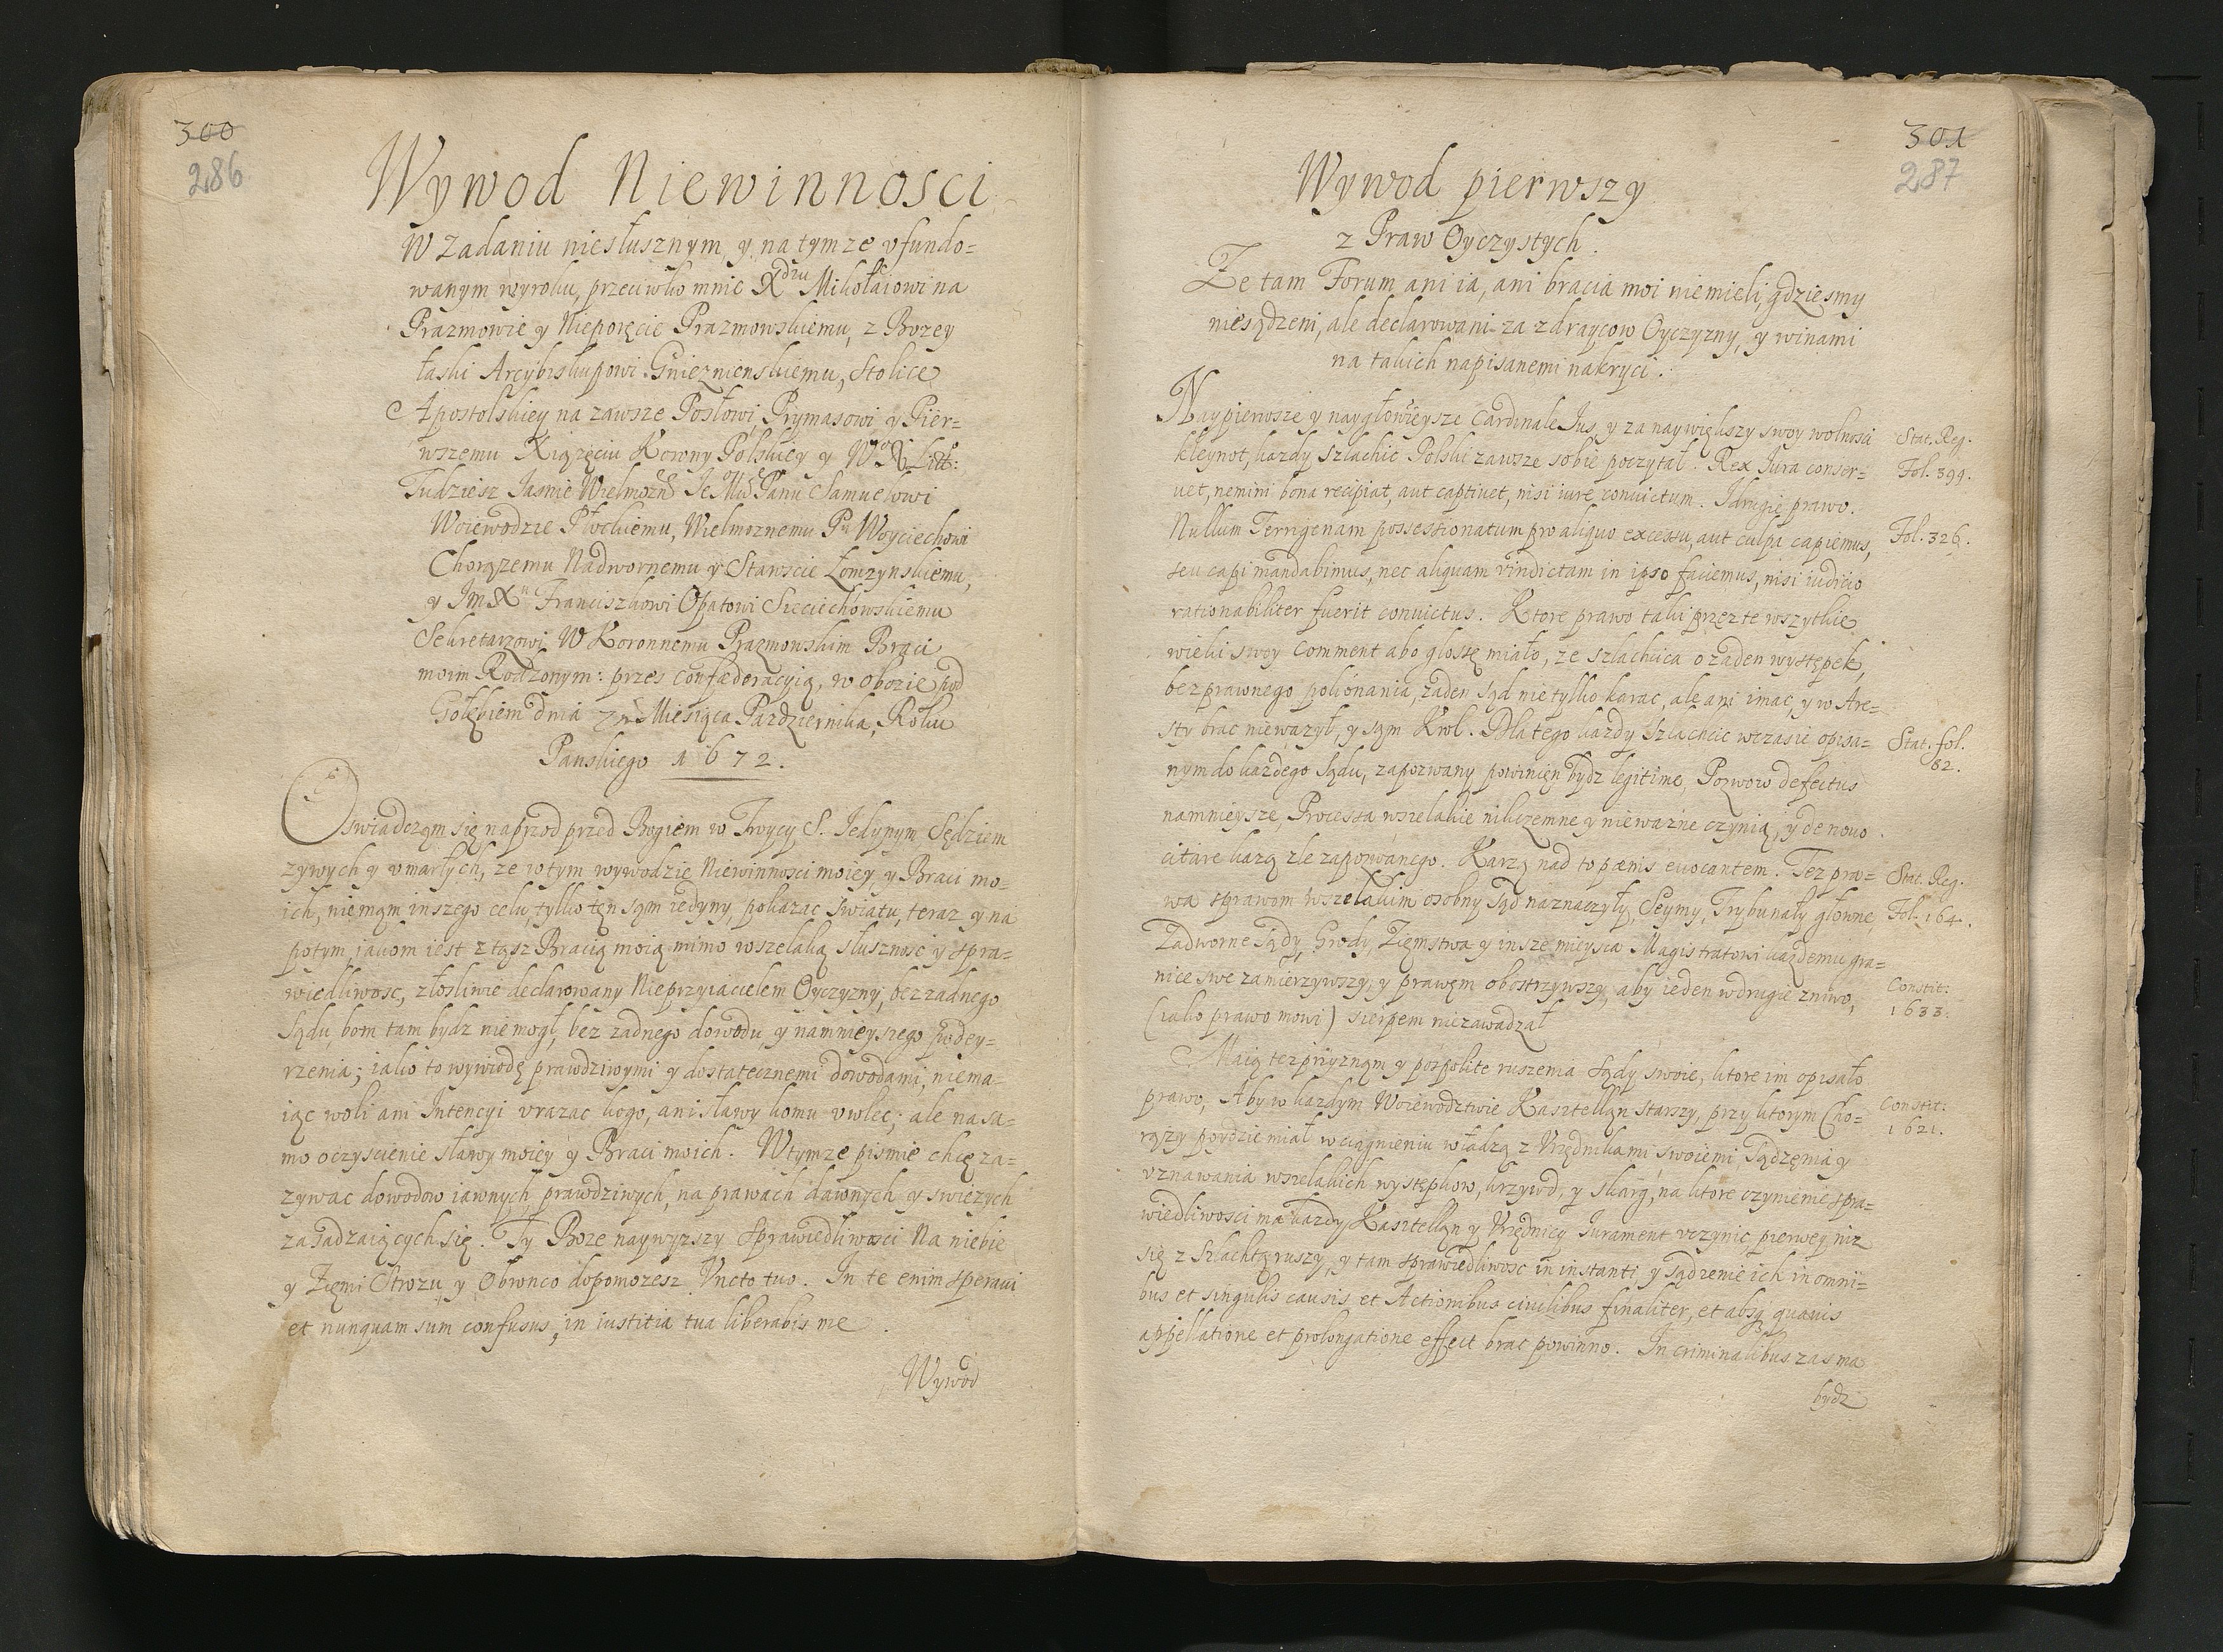 300
286
Wywod Niewinnosci
W zadaniu niesłusznym, y na tymze vfundo=
wanym wyroku, przeciwko mnie Xdzu Mikołaiowi na
Prazmowie y Nieporęcie Prazmowskiemu, z Bozey
łaski Arcybiskupowi Gnieznienskiemu, Stolice
Apostolskiey na zawsze Posłowi, Prymasowi y Pier=
wszemu Xiązęciu Korony Polskiey y W° X Litt:
Tudziesz Jasnie Wielmozn° Je° Mści Panu Samuelowi
Woiewodzie Płockiemu, Wielmoznemu Pu Woyciechowi
Chorązemu Nadwornemu y Staroscie Łomzynskiemu,
y Jm Xu Franciszkowi Opatowi Sieciechowskiemu
Sekretarzowi W Koronnemu Prazmowskim Braci
moim Rodzonym: przes Confæderacyią, w obozie pod
Gołębiem dnia Miesiąca Pazdziernika, Roku
Panskiego 1672.
Oswiadcząm się naprzod przed Bogiem w Troycy S. Jedynym Sędziem
zywych y vmarłych, ze w tym wywodzie Niewinnosci moiey y Braci mo=
ich, niemąm inszego celu, tylko tęn sąm iedyny, pokazac swiatu, teraz y na
potym, iakom iest z tąsz Bracią moią mimo wszelaką słusznosc y spra=
wiedliwosc, złosliwie declarowany Nieprzyiacielem Oyczyzny, bez zadnego
Sądu, bom tam bydz niemogł, bez zadnego dowodu, y namnieyszego podey=
rzenia; iako to wywiodę prawdziwymi y dostatecznemi dowodami, niema=
iąc woli ani Intencyi vrazac kogo, ani sławy komu vwlec; ale na sa=
mo oczyscienie sławy moiey y Braci moich. W tymze pismie chcę za=
zywac dowodow iawnych, prawdziwych, na prawach dawnych y swiezych
zasadzaiących się. Ty Boze naywyzszy Sprawiedliwosci Na niebie
y Ziemi Strozu, y Obronco dopomozesz Vncto tuo. In te enim speraui
et nunquam sum confusus, in iustitia tua liberabis me.
Wywod
301
287
Wywod pierwszy
z Praw Oyczystych.
Ze tam Forum ani ia, ani bracia moi niemieli, gdziesmy
niesądzeni, ale declarowani za zdraycow Oyczyzny, y winami
na takich napisanemi nakryci.
Naypierwsze y naygłownieysze Cardinale Jus, y za naywiększy swoy wolnosci
Stat. Reg.
kleynot, kazdy Szlachcic Polski zawsze sobie poczytał. Rex Jura conser=
Fol. 399.
uet, nemini bona recipiat, aut captivet, nisi iure conuictum. I drugie prawo.
Nullum Terrigenam possessionatum pro aliquo excessu, aut culpa capiemus,
Fol. 326.
seu capi mandabimus, nec aliquam vindictam in ipso faciemus, nisi iudicio
rationabiliter fuerit convictus. Ktore prawo taki przez te wszytkie
wieki swoy Comment abo glossę miało, ze szlachcica o zaden występek,
bez prawnego pokonania, zaden sąd nie tylko karac, ale ani imac, y w Are=
sty brac niewazył, y sąm Krol. Dla tego kazdy Szlachcic wczasie opisa=
Stat. fol.
82.
nym do kazdego Sądu, zapozwany powinięn bydz legitime, Pozwow defectus
namnieysze, Processa wszelakie nikczemne y niewazne czynią, y de nouo
citare kazą zle zapozwanego. Karzą nad to pænis euocantem. Tez pra=
Stat. Reg.
wa sprawom wszelakim osobny sąd naznaczyły, Seymy, Trybunały głowne,
Fol. 164.
Zadworne sądy, Grody, Ziemstwa y insze mieysca Magistratowi kazdemu gra=
nice swe zamierzywszy, y prawęm obostrzywszy, aby ieden w drugie zniwo,
Constit:
1633.
(iako prawo mowi) sierpem niezawadzał
Maią tez przyznąm y pospolite ruszenia Sądy swoie, ktore im opisało
prawo, Aby w kazdym Woiewodztwie Kasztelląn starszy, przy ktorym Cho=
Constit:
1621.
rązy poydzie miał w ciągnieniu władzą z Vrzędnikami swoiemi, Sądzęnia y
vznawania wszelakich występkow, krzywd, y skarg, na ktore czynienie spra=
wiedliwosci ma kazdy Kasztellan y Vrzędnicy Jurament vczynic, pierwey niz
się z Szlachtą ruszy, y tam sprawiedliwosc in instanti, y sądzenie ich in omni=
bus et singulis causis et Actionibus ciuilibus finaliter, et absq quauis
appellatione et prolongatione effect brac powinno. In criminalibus zas ma
bydz